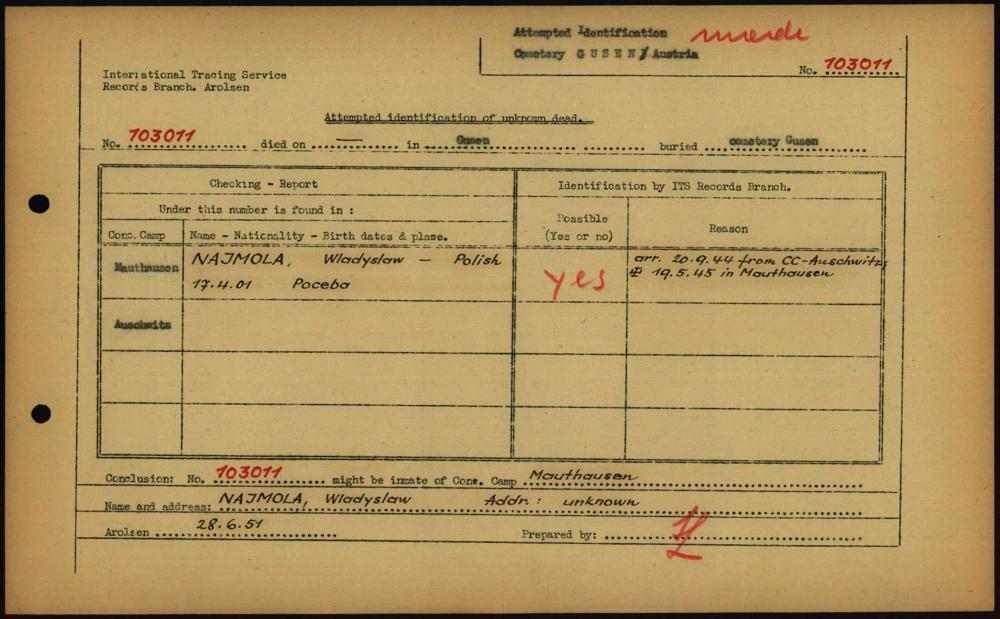 Attempted Identification
Cemetery GUSEN / Austria
No. 103011
International Tracing Service
Records Branch. Arolsen
Attempted identification of unknown dead.
No. 103011 died on — in Gusen buried cemetery Gusen
Checking - Report
Identification by ITS Records Branch.
Under this number is found in :
Possible
(Yes or no)
Reason
Conc. Camp
Name - Nationality - Birth dates & place.
Mauthausen
NAJMOLA, Wladyslaw — Polish
17.4.01 Poceba
yes
arr. 20.9.44 from CC-Auschwitz;
19.5.45 in Mauthausen
Auschwitz
Conclusion: No. 103011 might be inmate of Conc. Camp Mauthausen
Name and address: NAJMOLA, Wladyslaw Addr.: unknown
Arolsen 28.6.51
Prepared by: